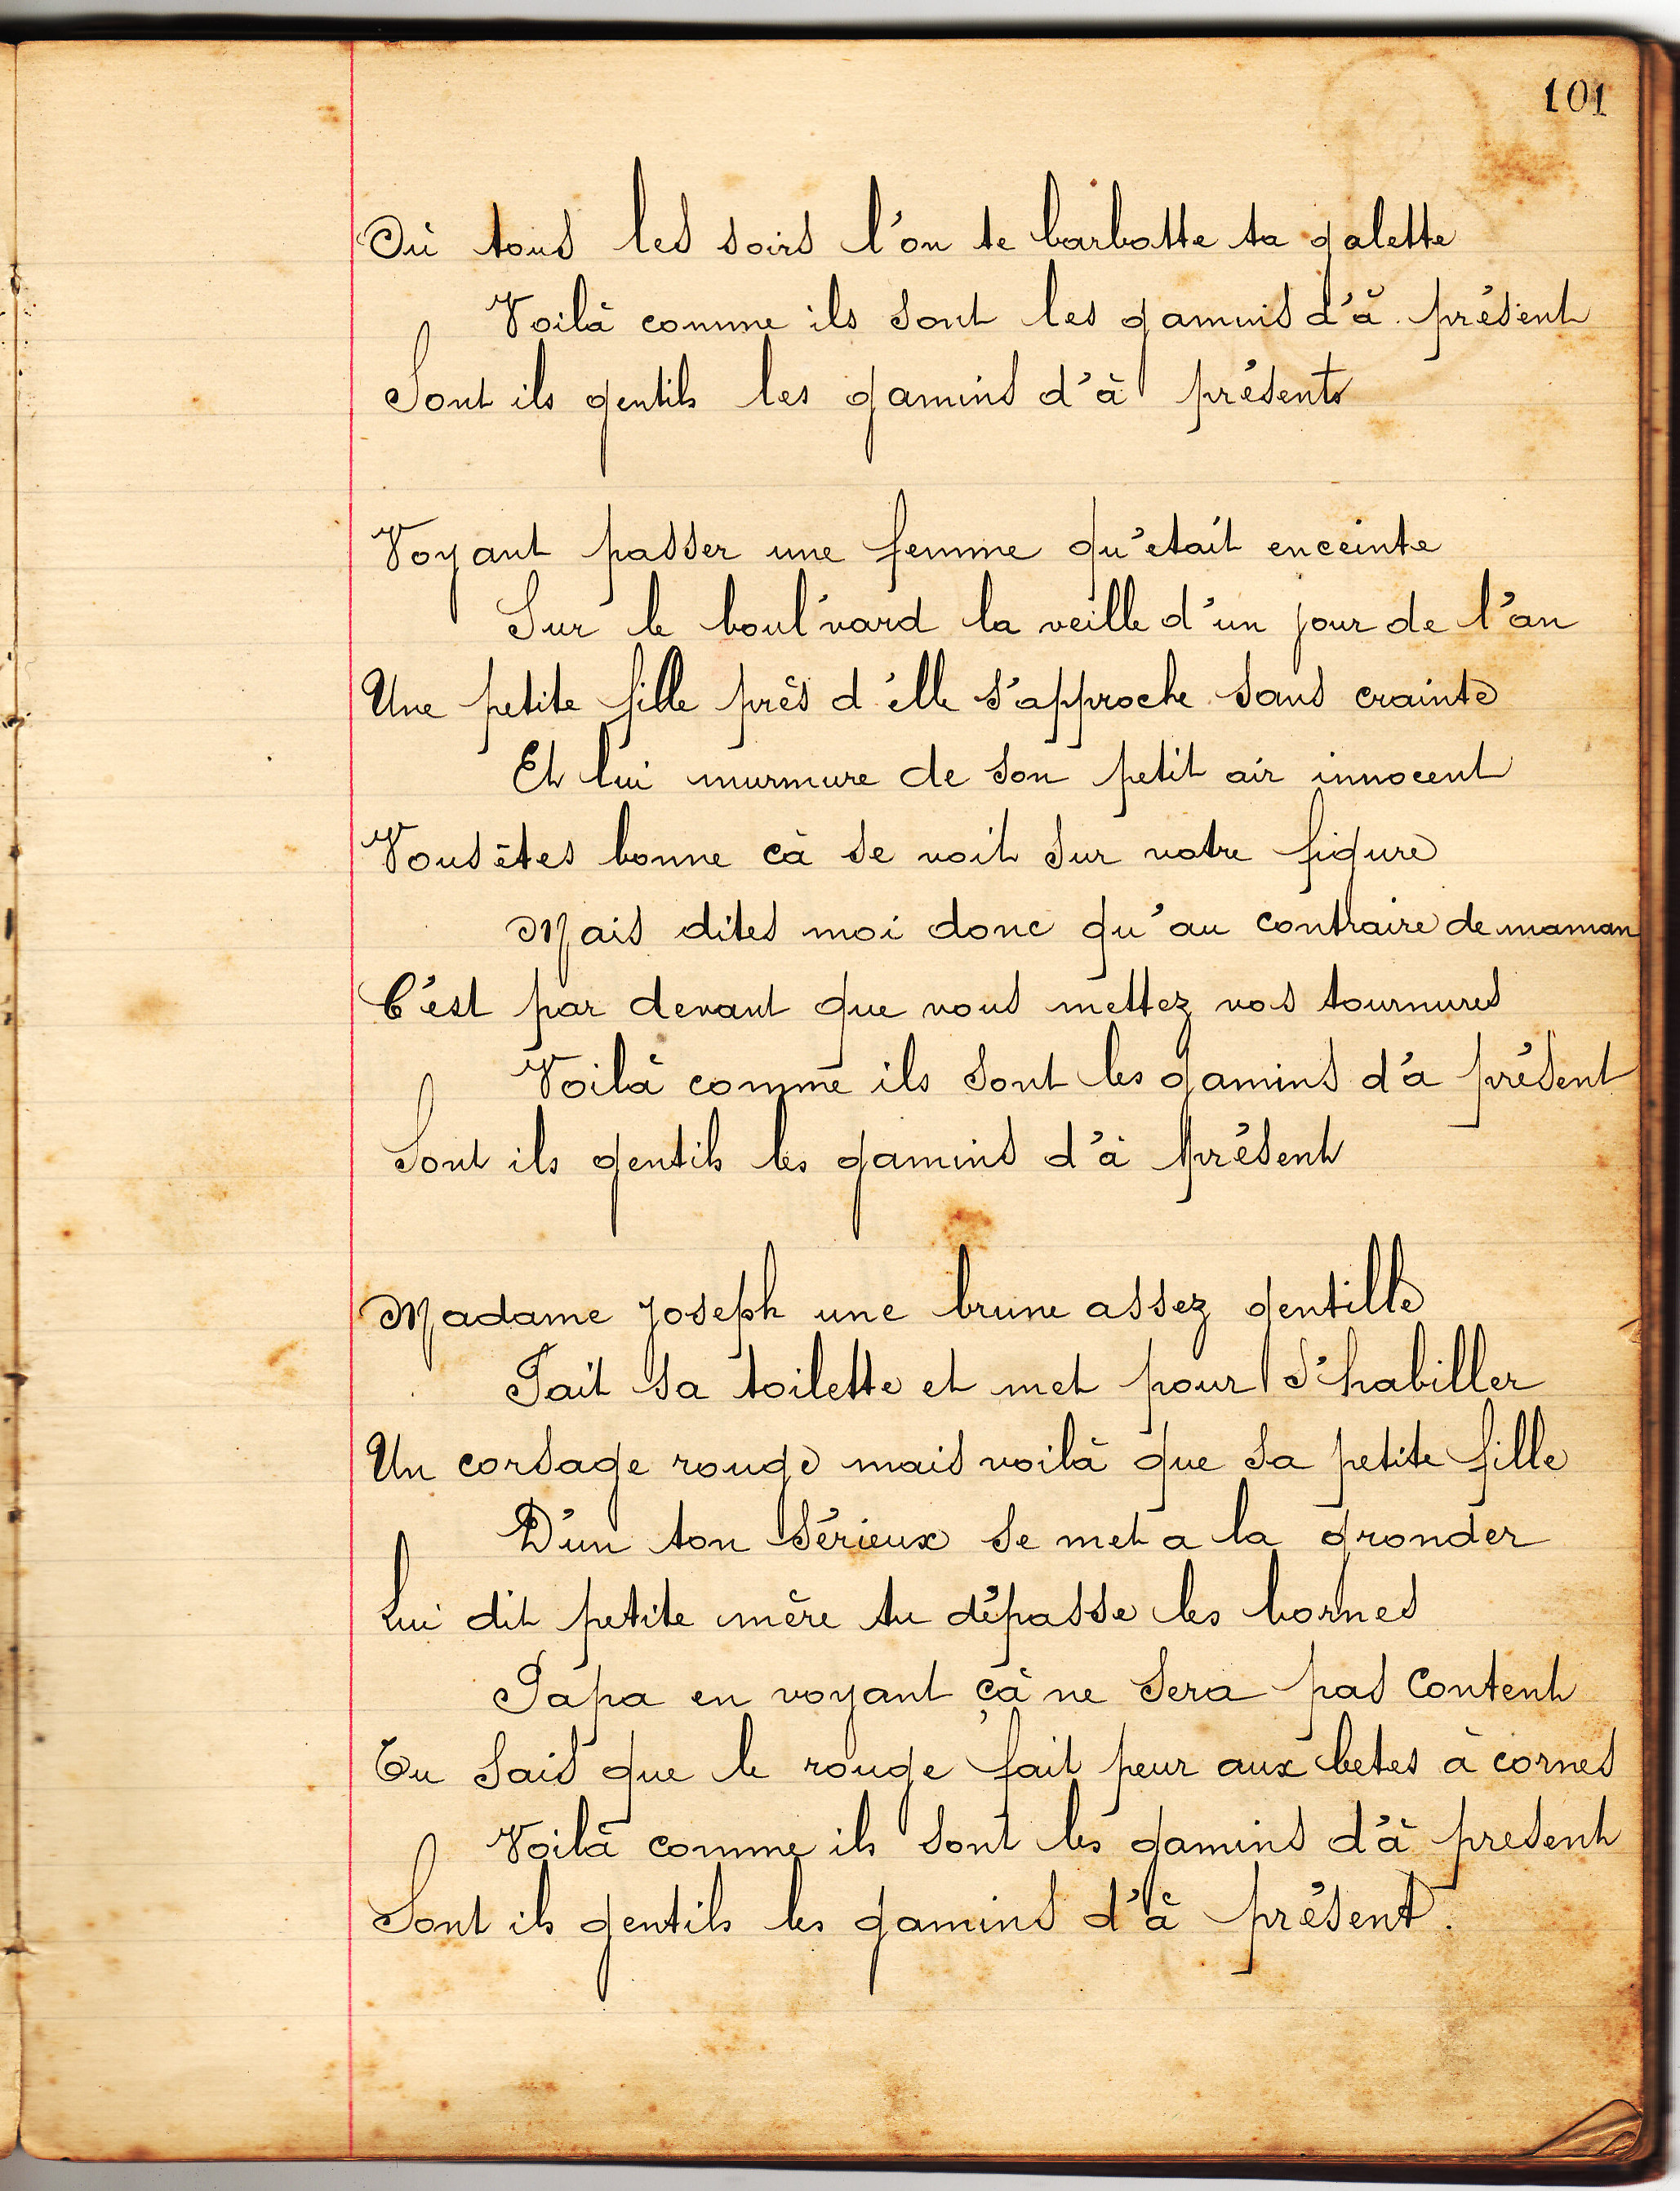 101
Où tous les soirs l'on te barbotte ta galette
Voilà comme ils sont les gamins d'à présent
Sont ils gentils les gamins d'à présents
Voyant passer une femme qu'etait enceinte
Sur le boul'vard la veille d'un jour de l'an
Une petite fille près d'elle s'approche sans crainte
Et lui murmure de son petit air innocent
Vous êtes bonne cà se voit sur votre figure
Mais dites moi donc qu'au contraire de maman
C'est par devant que vous mettez vos tournures
Voilà comme ils sont les gamins d'à présent
Sont ils gentils les gamins d'à présent
Madame Joseph une brune assez gentille
Fait sa toilette et met pour s'habiller
Un corsage rouge mais voilà que sa petite fille
D'un ton sérieux se met a la gronder
Lui dit petite mère tu dépasse les bornes
Papa en voyant çà ne sera pas content
Tu sais que le rouge fait peur aux betes à cornes
Voilà comme ils sont les gamins d'à present
Sont ils gentils les gamins d'à présent.